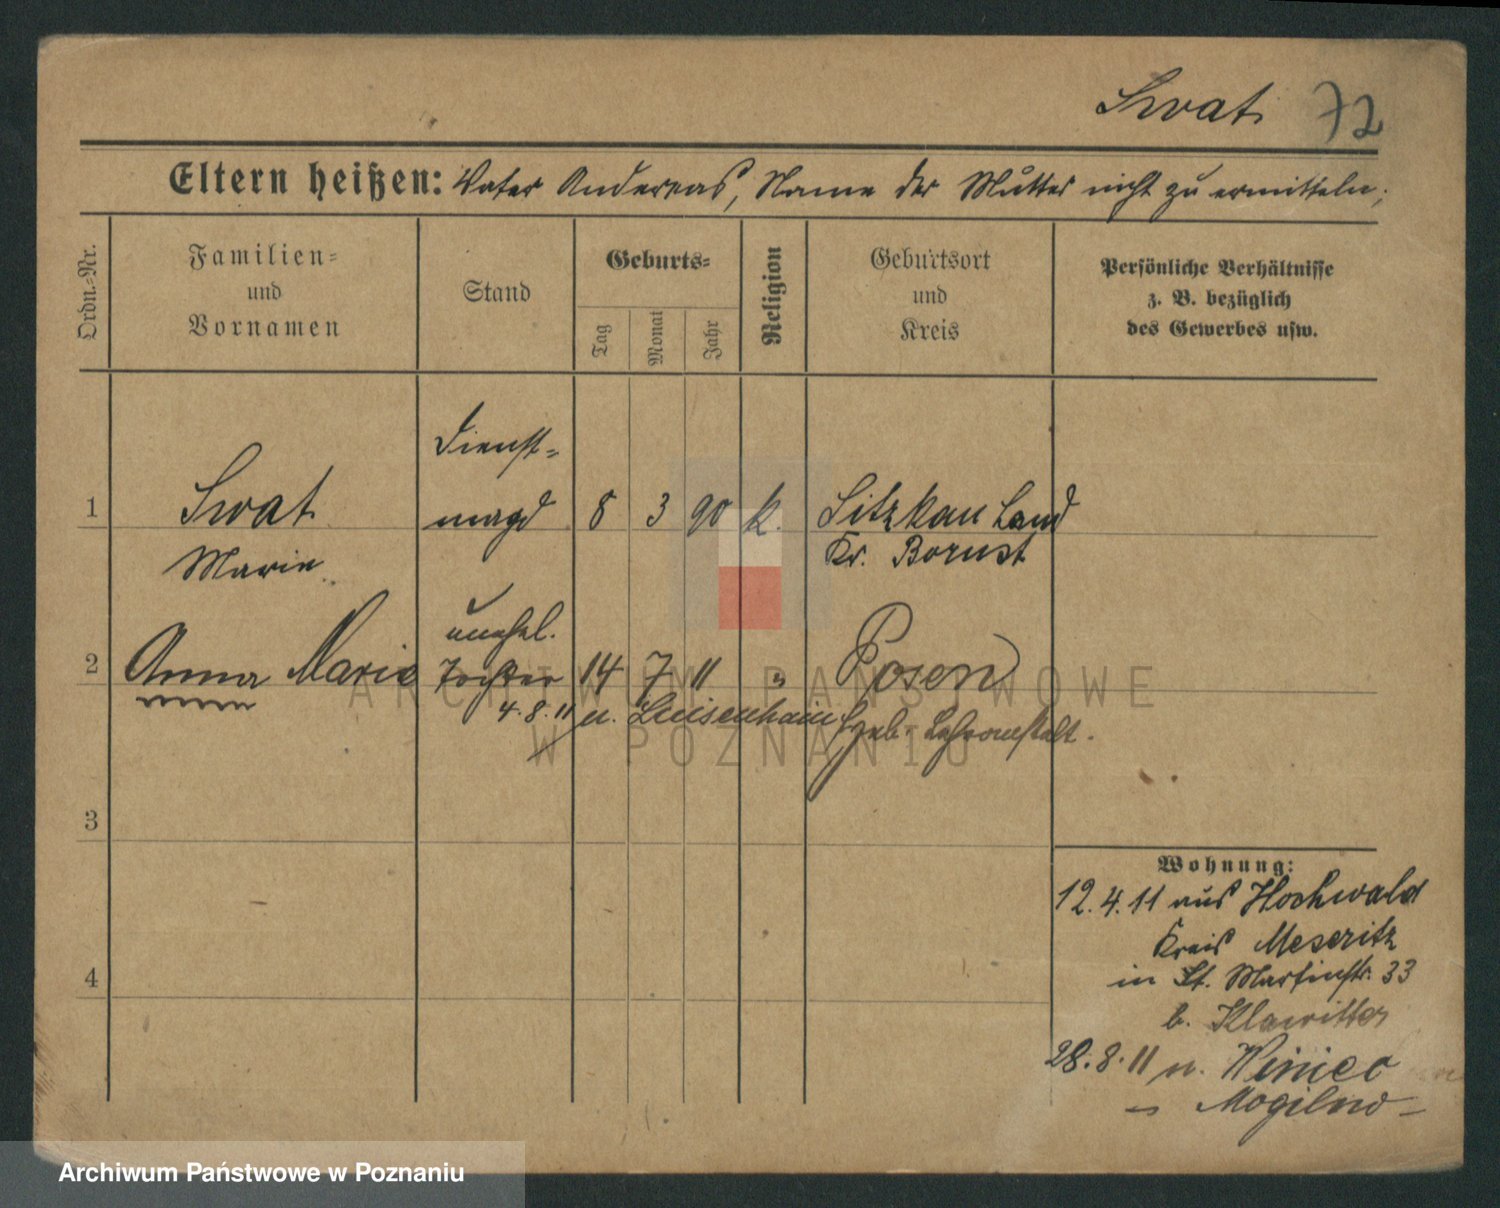 Swat. 72
Eltern heißen: Vater Andereas, Name der Mutter nicht zu ermitteln;
Ordn.-Nr.
Familien-
und
Vornamen
Stand
Geburts-
Tag
Monat
Jahr
Religion
Geburtsort
und
Kreis
Persönliche Verhältnisse
z. B. bezüglich
des Gewerbes usw.
Dienst-
1 Swat magd 8 3 90 k. Sitzkau Land
Marie Kr. Bomst
unehel.
2 Anna Marie Tochter 14 7 11 " Posen
4.8.11 n. Luisenhain Hgeb. Lehranstalt.
3
4
Wohnung:
12.4.11 aus Hochwald
Kreis Meseritz
in St. Martinstr. 33
b. Klawitter
28.8.11 n. Winiec
" Mogilno
ARCHIWUM PAŃSTWOWE
W POZNANIU
Archiwum Państwowe w Poznaniu